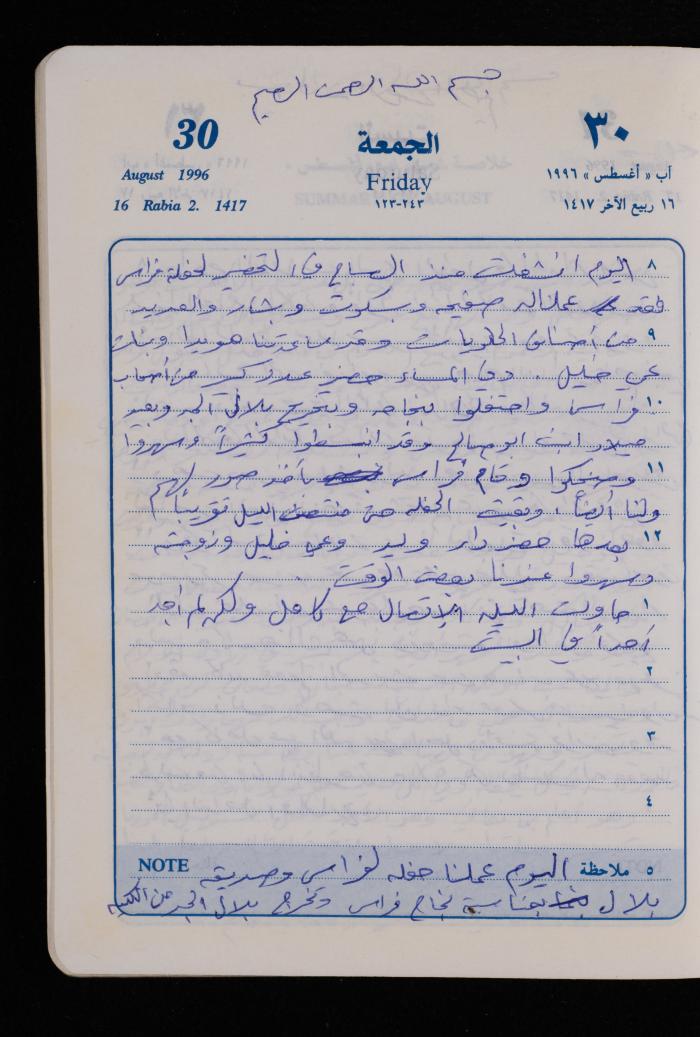 بسم الله الرحمن الرحيم
30 الجمعة ٣٠
August 1996 Friday آب « أغسطس » ١٩٩٦
16 Rabia 2. 1417 ٢٤٣-١٢٣ ١٦ ربيع الآخر ١٤١٧
٨ اليوم انشغلت منذ الصباح في التحضير لحفلة فراس
فقد عملناله صفيحه وبسكوت وبشار والعديد
٩ من أصناف الحلويات وقد ساعدتنا هويدا وبنات
عمي خليل . وفي المساء حضر عدد كبير من أصحاب
١٠ فراس واحتفلوا بنجاحه وبتخريج بلال الجبر وبعيد
ميلاد ابن ابو صالح وقد انبسطوا كثيراً وسهروا
١١ وضحكوا وقام فراس بأخذ صور لهم
ولنا أيضاً ، وبقيت الحفله حتى منتصف الليل تقريباً
١٢ بعدها حضر دار وليد وعمي خليل وزوجته
وسهروا عندنا بعض الوقت .
١ حاولت الليله الإتصال مع كامل ولكن لم اجد
أحداً في البيت
٢
٣
٤
٥ ملاحظة اليوم عملنا حفله لفراس وصديقه NOTE
بلال بمناسبة نجاح فراس وتخرج بلال الجبر من الكليه